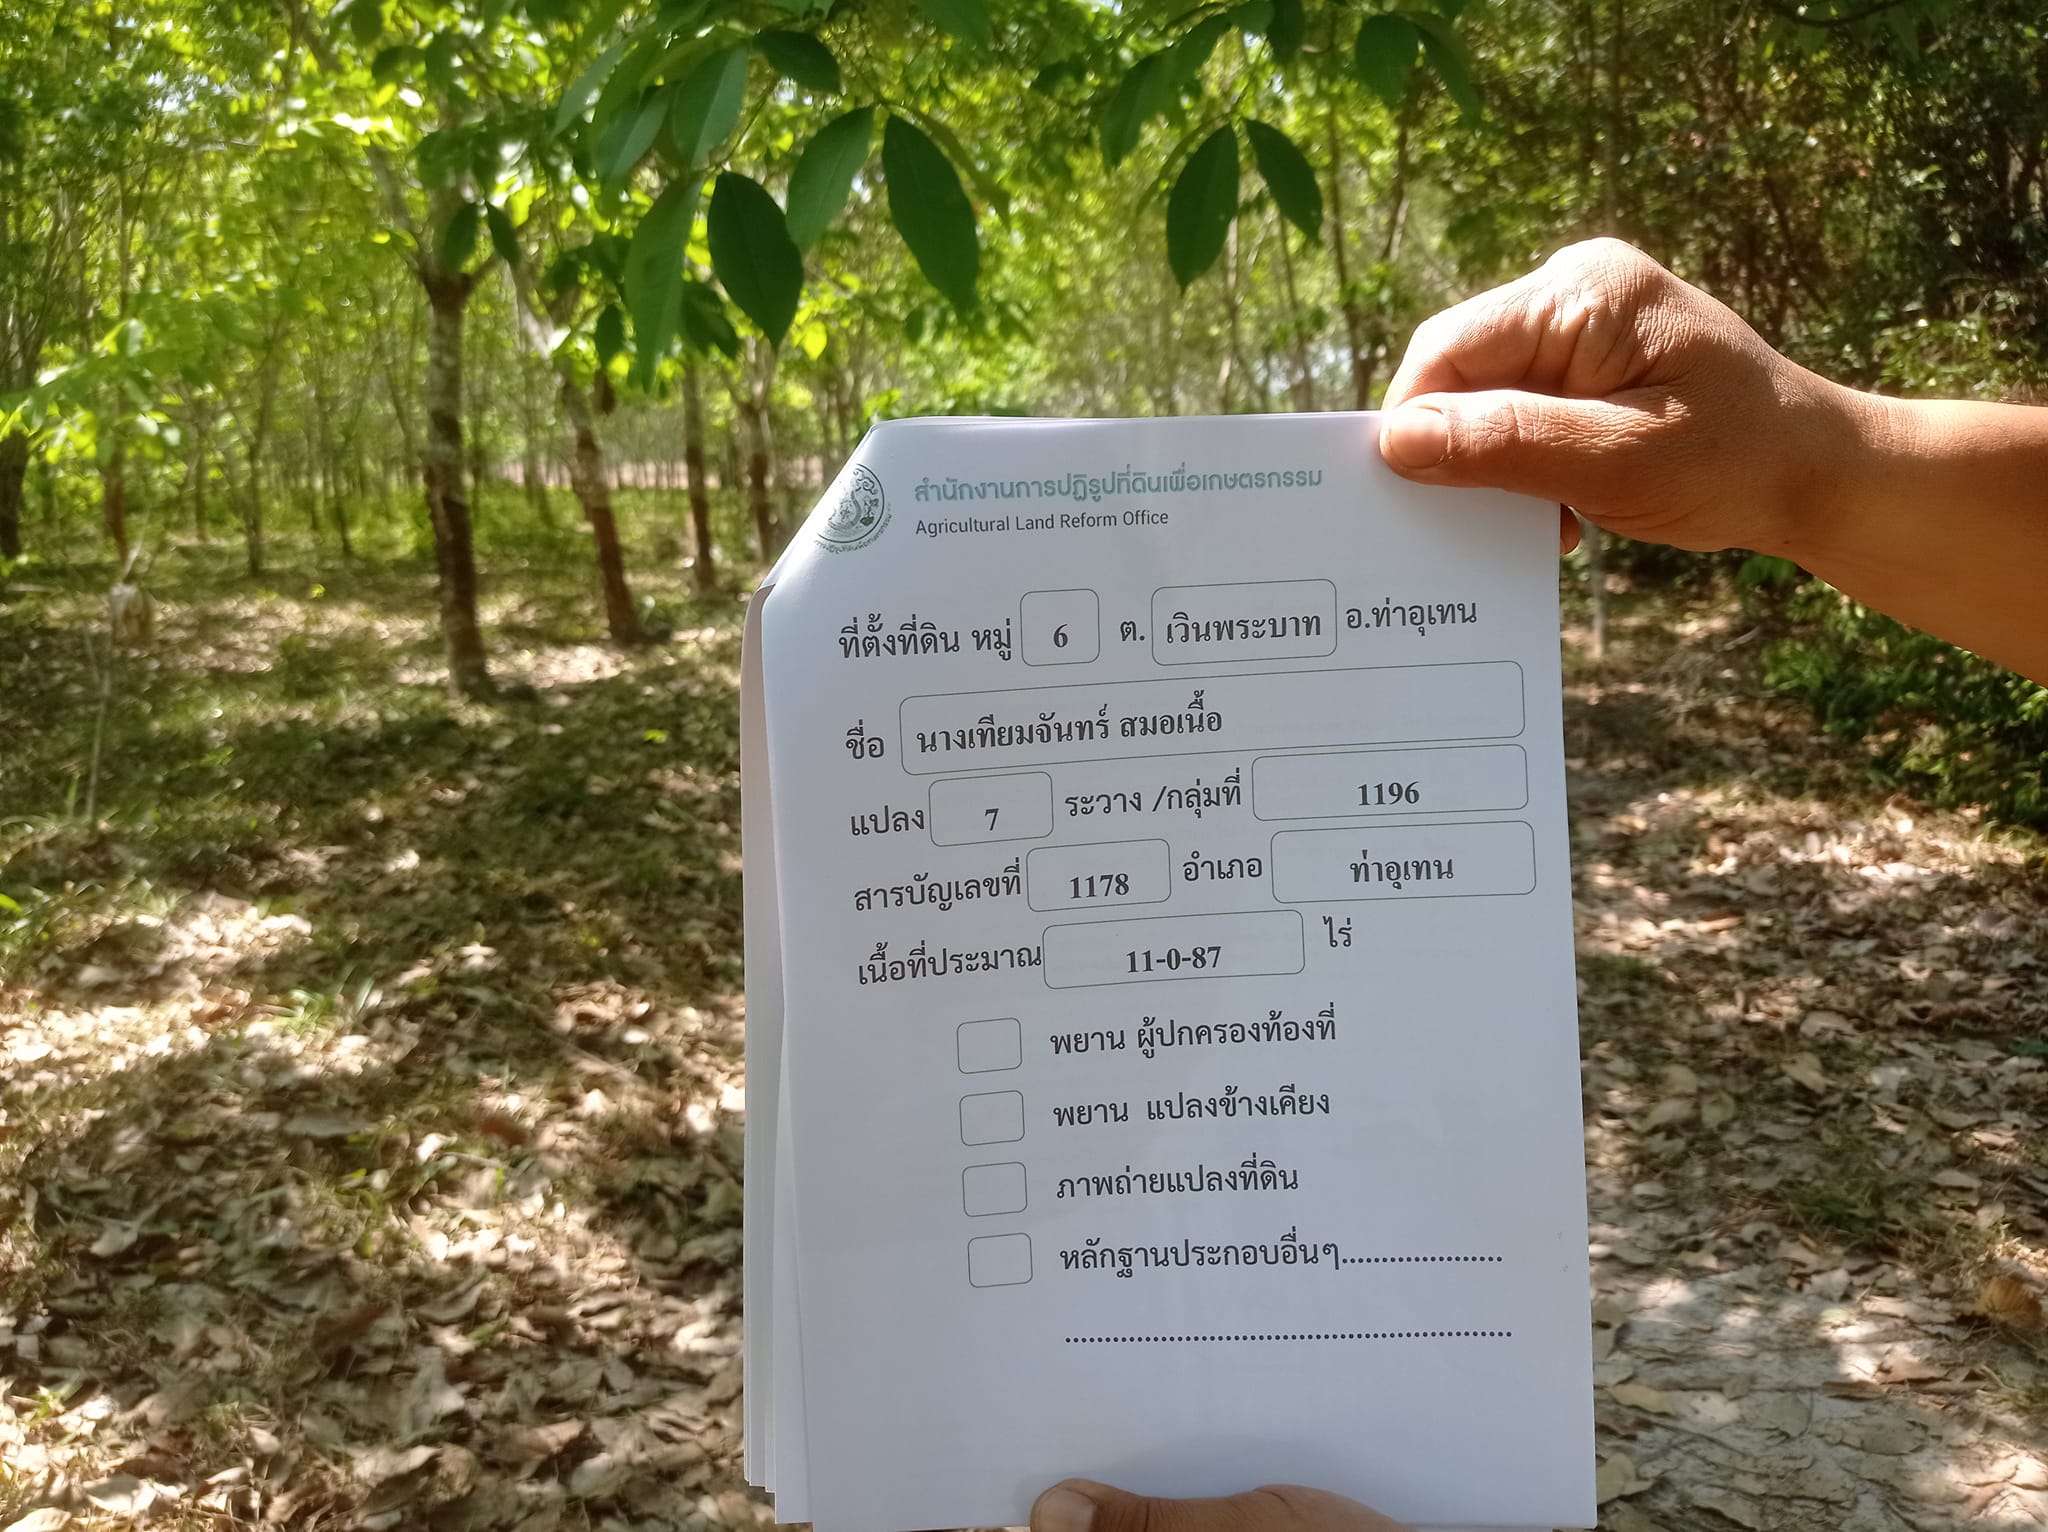 สำนักงานการปฏิรูปที่ดินเพื่อเกษตรกรรม
Agricultural Land Reform Office
ที่ตั้งที่ดิน หมู่ 6 ต. เวินพระบาท อ.ท่าอุเทน
ชื่อ นางเทียมจันทร์ สมอเนื้อ
แปลง 7 ระวาง /กลุ่มที่ 1196
สารบัญเลขที่ 1178 อำเภอ ท่าอุเทน
เนื้อที่ประมาณ 11-0-87 ไร่
พยาน ผู้ปกครองท้องที่
พยาน แปลงข้างเคียง
ภาพถ่ายแปลงที่ดิน
หลักฐานประกอบอื่นๆ....................
.........................................................